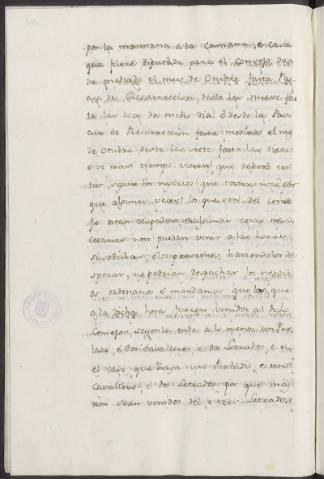 por la mannana a la Camara, o casa
que fuere diputada para el Consejo des
de mediado el mes de Otubre fasta Pas
cua de Resurreccion, desde las nueve fas
ta las doce de medio dia: è desde la Pas
cua de Resurreccion fasta mediado el mes
de Otubre desde las siete fasta las diez:
e si mas tiempo vieren que deben es
tar, segun los negocios que
que algunas veces los que estal del Conse
jo estan ocupados en algunas cosas nece
sarias non puedan venir a las horas
susodichas, è los que vernan, habiendolos de
esperar, no podrian despachar los negocios
ordenamos è mandamos que los que
a la dicha hora fueren venidos al dicho
Consejo, seyendo ende a lo menos un Per
lado, è dos Cavalleros e dos Letrados, e en
el caso que haya un Perlado e un
Cavallero e dos Letrados por que mas
non sean venidos, dél e tres Letrados,